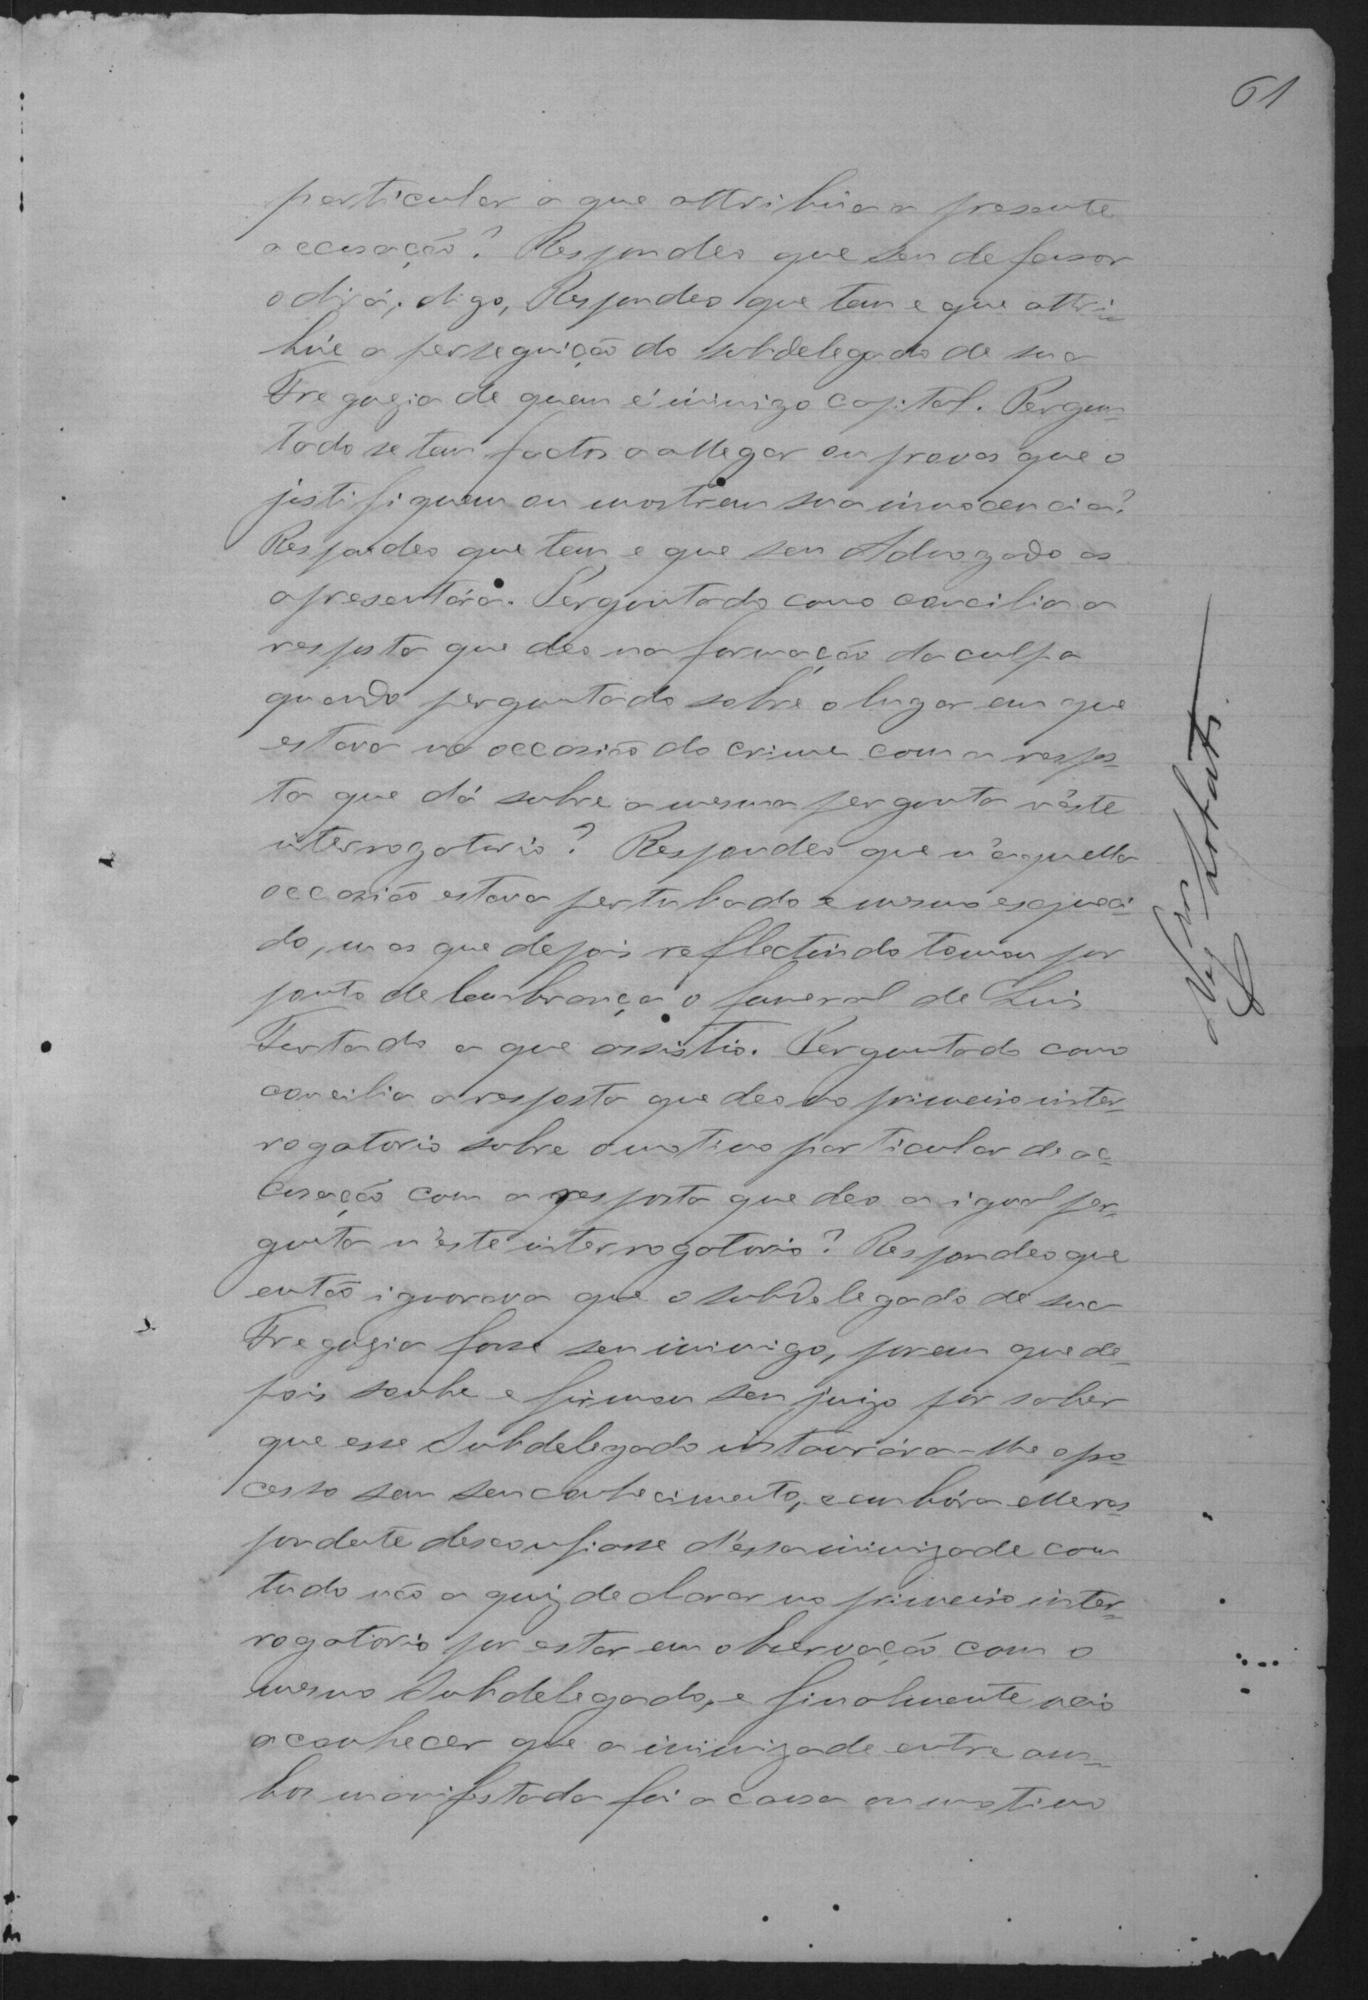 61
particular a que attribúa a presente
accusação? Respondeo que seu defensor
o dirá, digo, Respondeo que tem e que attri-
búe a perseguição do subdelegado de sua
Freguzia de quem é inimigo capital. Pergun-
tado se tem factos a allegar ou provas que o
justifiquem ou mostrem sua innocencia?
Respondeo que tem e que seu Advogado as
apresentára. Perguntado como concilia a
resposta que deo na formação da culpa
quando perguntado sobre o lugar em que
estava na occasião do crime com a respos-
ta que dá sobre a mesma pergunta n'éste
interrogatorio? Respondeo que n'aquella
occasião estava pertubado e mesmo esqueci-
do, mas que depois reflectindo tomou por
ponto de lembrança o funeral de Luis
Furtado a que assistio. Perguntado como
concilia a resposta que deo no primeiro inter-
rogatorio sobre o motivo particular de ac-
cusação com a resposta que deo a igual per-
gunta n'éste interrogatorio? Respondeo que
então ignorava que o subdelegado de sua
Freguzia fosse seu inimigo, porem que de-
pois soube e firmou seu juizo por saber
que esse Subdelegado instaurára-lhe o pro-
cesso sem seu conhecimento, e embóra elle res-
pondente desconfiasse d'essa inimizade com
tudo não a quiz declarar no primeiro inter-
rogatorio por estar em observação com o
mesmo Subdelegado, e finalmente veio
a conhecer que a inimizade entre am-
bos manifestada foi a causa ou motivo
Lobato